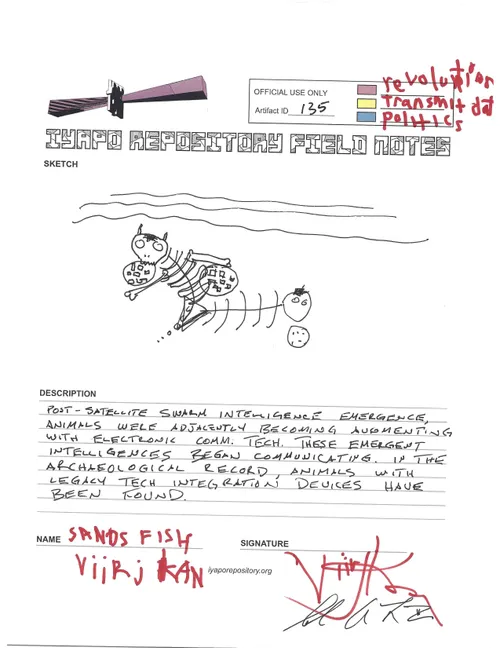 OFFICIAL USE ONLY
Artifact ID 135
revolution
transmit dat
politics
IYAPO REPOSITORY FIELD NOTES
SKETCH
DESCRIPTION
POST-SATELLITE SWARM INTELLIGENCE EMERGENCE,
ANIMALS WERE ADJACENTLY BECOMING AUGMENTING
WITH ELECTRONIC COMM. TECH. THESE EMERGENT
INTELLIGENCES BEGAN COMMUNICATING. IN THE
ARCHAEOLOGICAL RECORD, ANIMALS WITH
LEGACY TECH INTEGRATION DEVICES HAVE
BEEN FOUND.
NAME SANDS FISH
VijRj KAN
iyaporepository.org
SIGNATURE